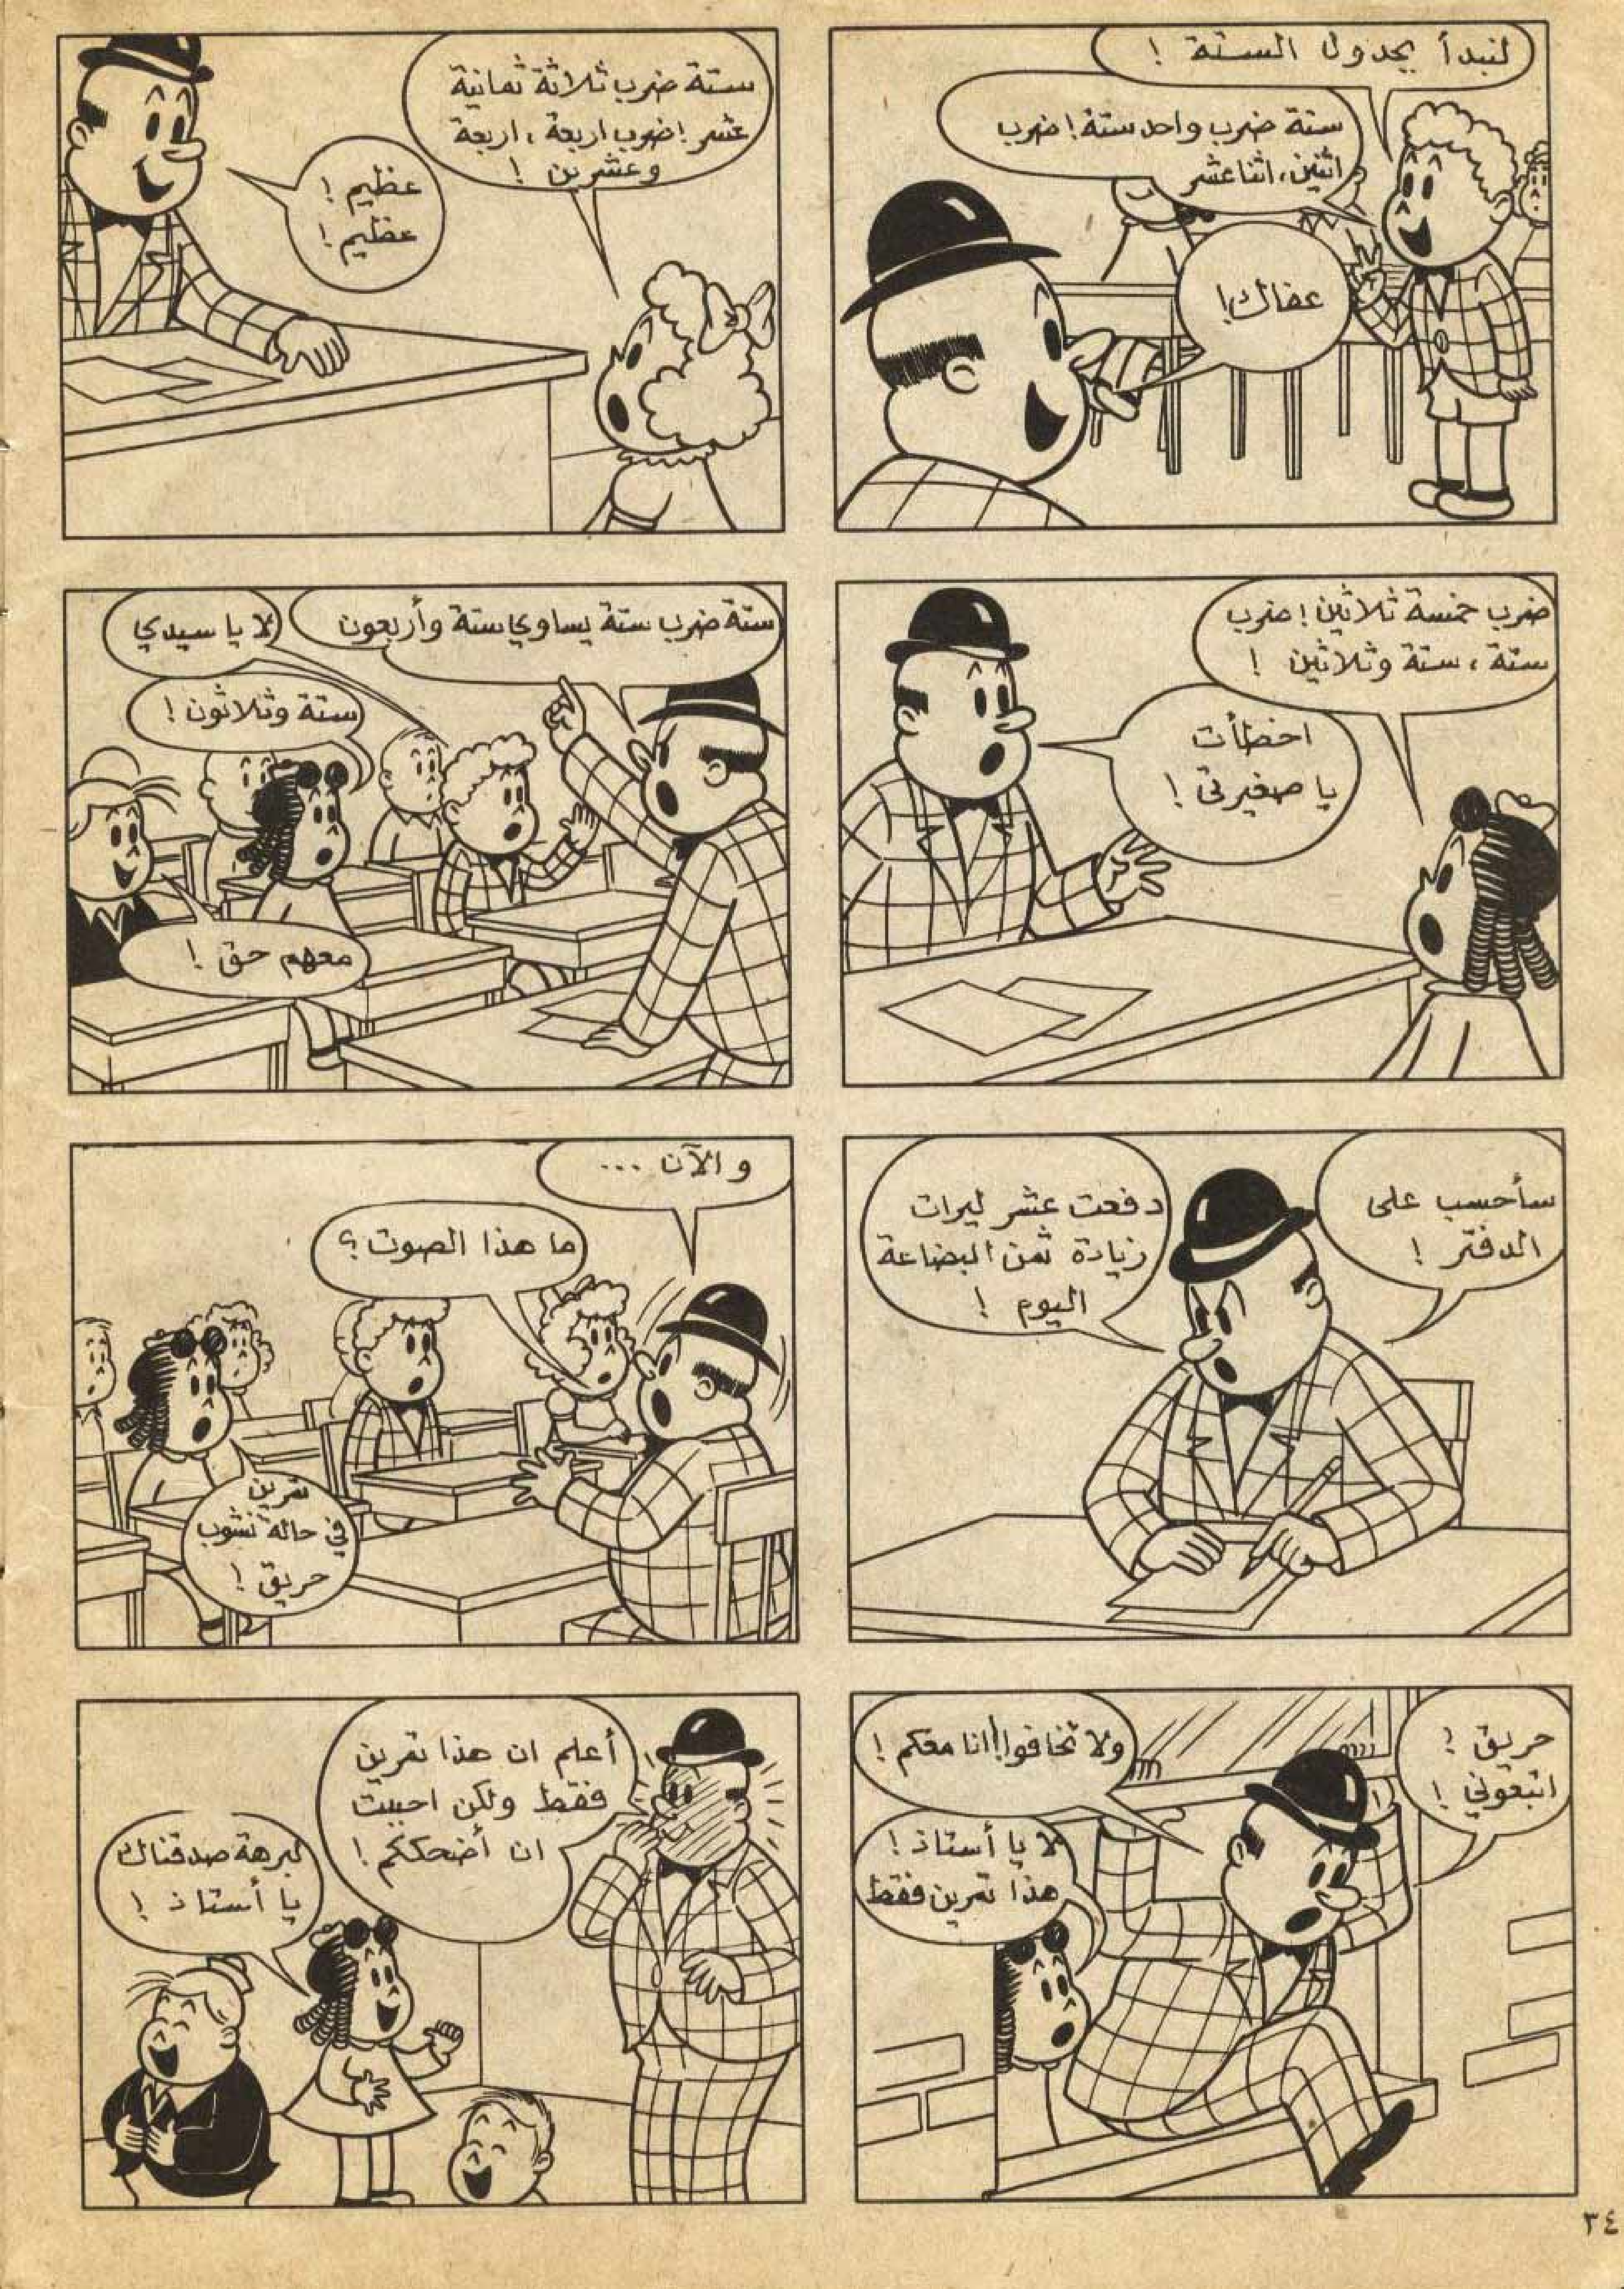 لنبدأ بجدول الستة !
ستة ضرب واحد ستة ! ضرب
اثنين، اثنا عشر
عفاك !
ستة ضرب ثلاثة ثمانية
عشر ! ضرب اربعة ، اربعة
وعشرين !
عظيم !
عظيم !
ضرب خمسة ثلاثين ! ضرب
ستة ، ستة وثلاثين !
اخطأت
يا صغيرتي !
ستة ضرب ستة يساوي ستة وأربعون
لا يا سيدي
ستة وثلاثون !
معهم حق !
سأحسب على
الدفتر !
دفعت عشر ليرات
زيادة ثمن البضاعة
اليوم !
والآن ...
ما هذا الصوت ؟
تمرين
في حالة نشوب
حريق !
حريق !
اتبعوني !
ولا تخافوا ! انا معكم !
لا يا أستاذ !
هذا تمرين فقط
أعلم ان هذا تمرين
فقط ولكن احببت
ان أضحككم !
لبرهة صدقناك
يا أستاذ !
٣٤